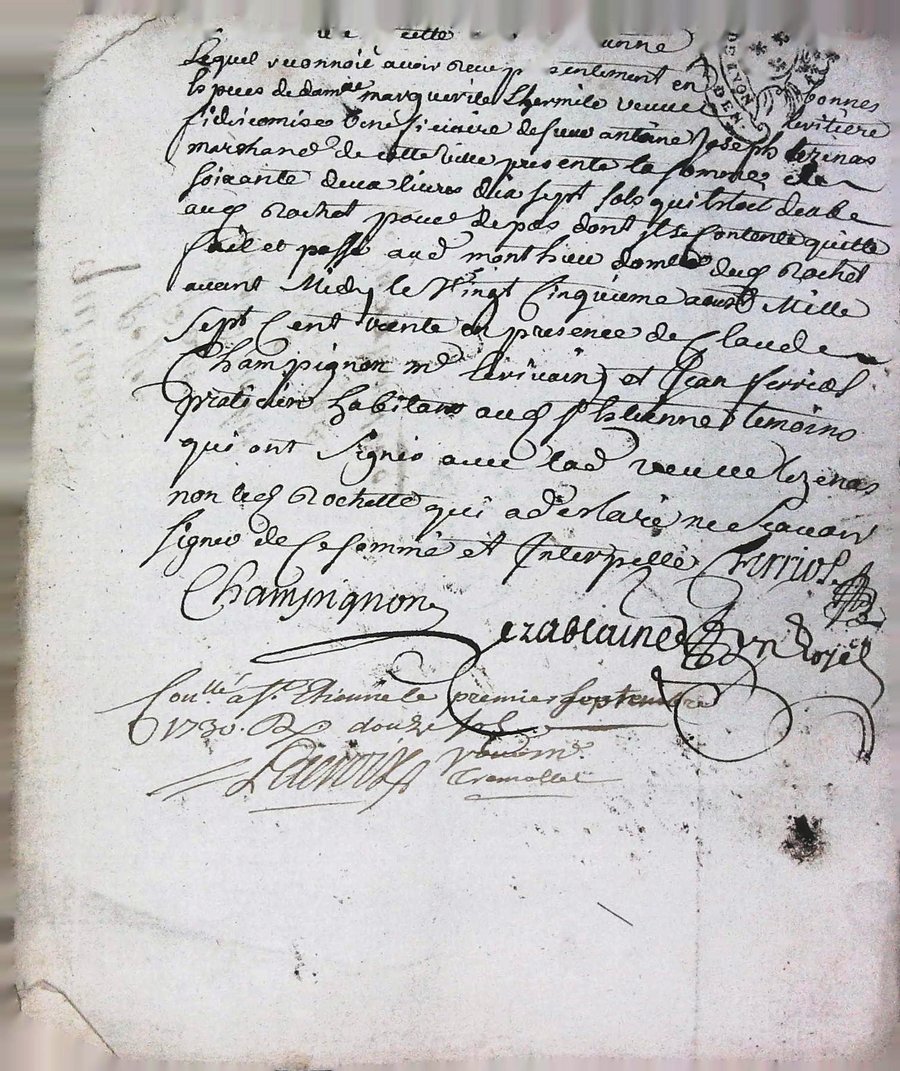 cette
Lequel reconnoit avoir Receu presentement en bonnes
Especes de dame marguerite Lhermite veuve heritiere
fideicomise beneficiaire de feu antoine Joseph Lezenas
marchand de cette ville presente la somme de
soixante deux livres dix sept sols qui Estoit deube
aud Rochet pour de pas dont il se Contente quitte
fait et passé aud monthieu domicile dud Rochet
avant Midy le Vingt Cinquieme aoust Mille
sept Cent trente en presence de Claude
Champignon me Ecrivain et Jean ferriol
praticien habitans aud St Estienne temoins
qui ont signéo avec lad veuve Lezenas
non led Rochette qui a declaré ne scavoir
signer de Ce sommé et Interpellé ferriol
Champignon
Coullé a St. Etienne le premier septembre
1730. R douze sols